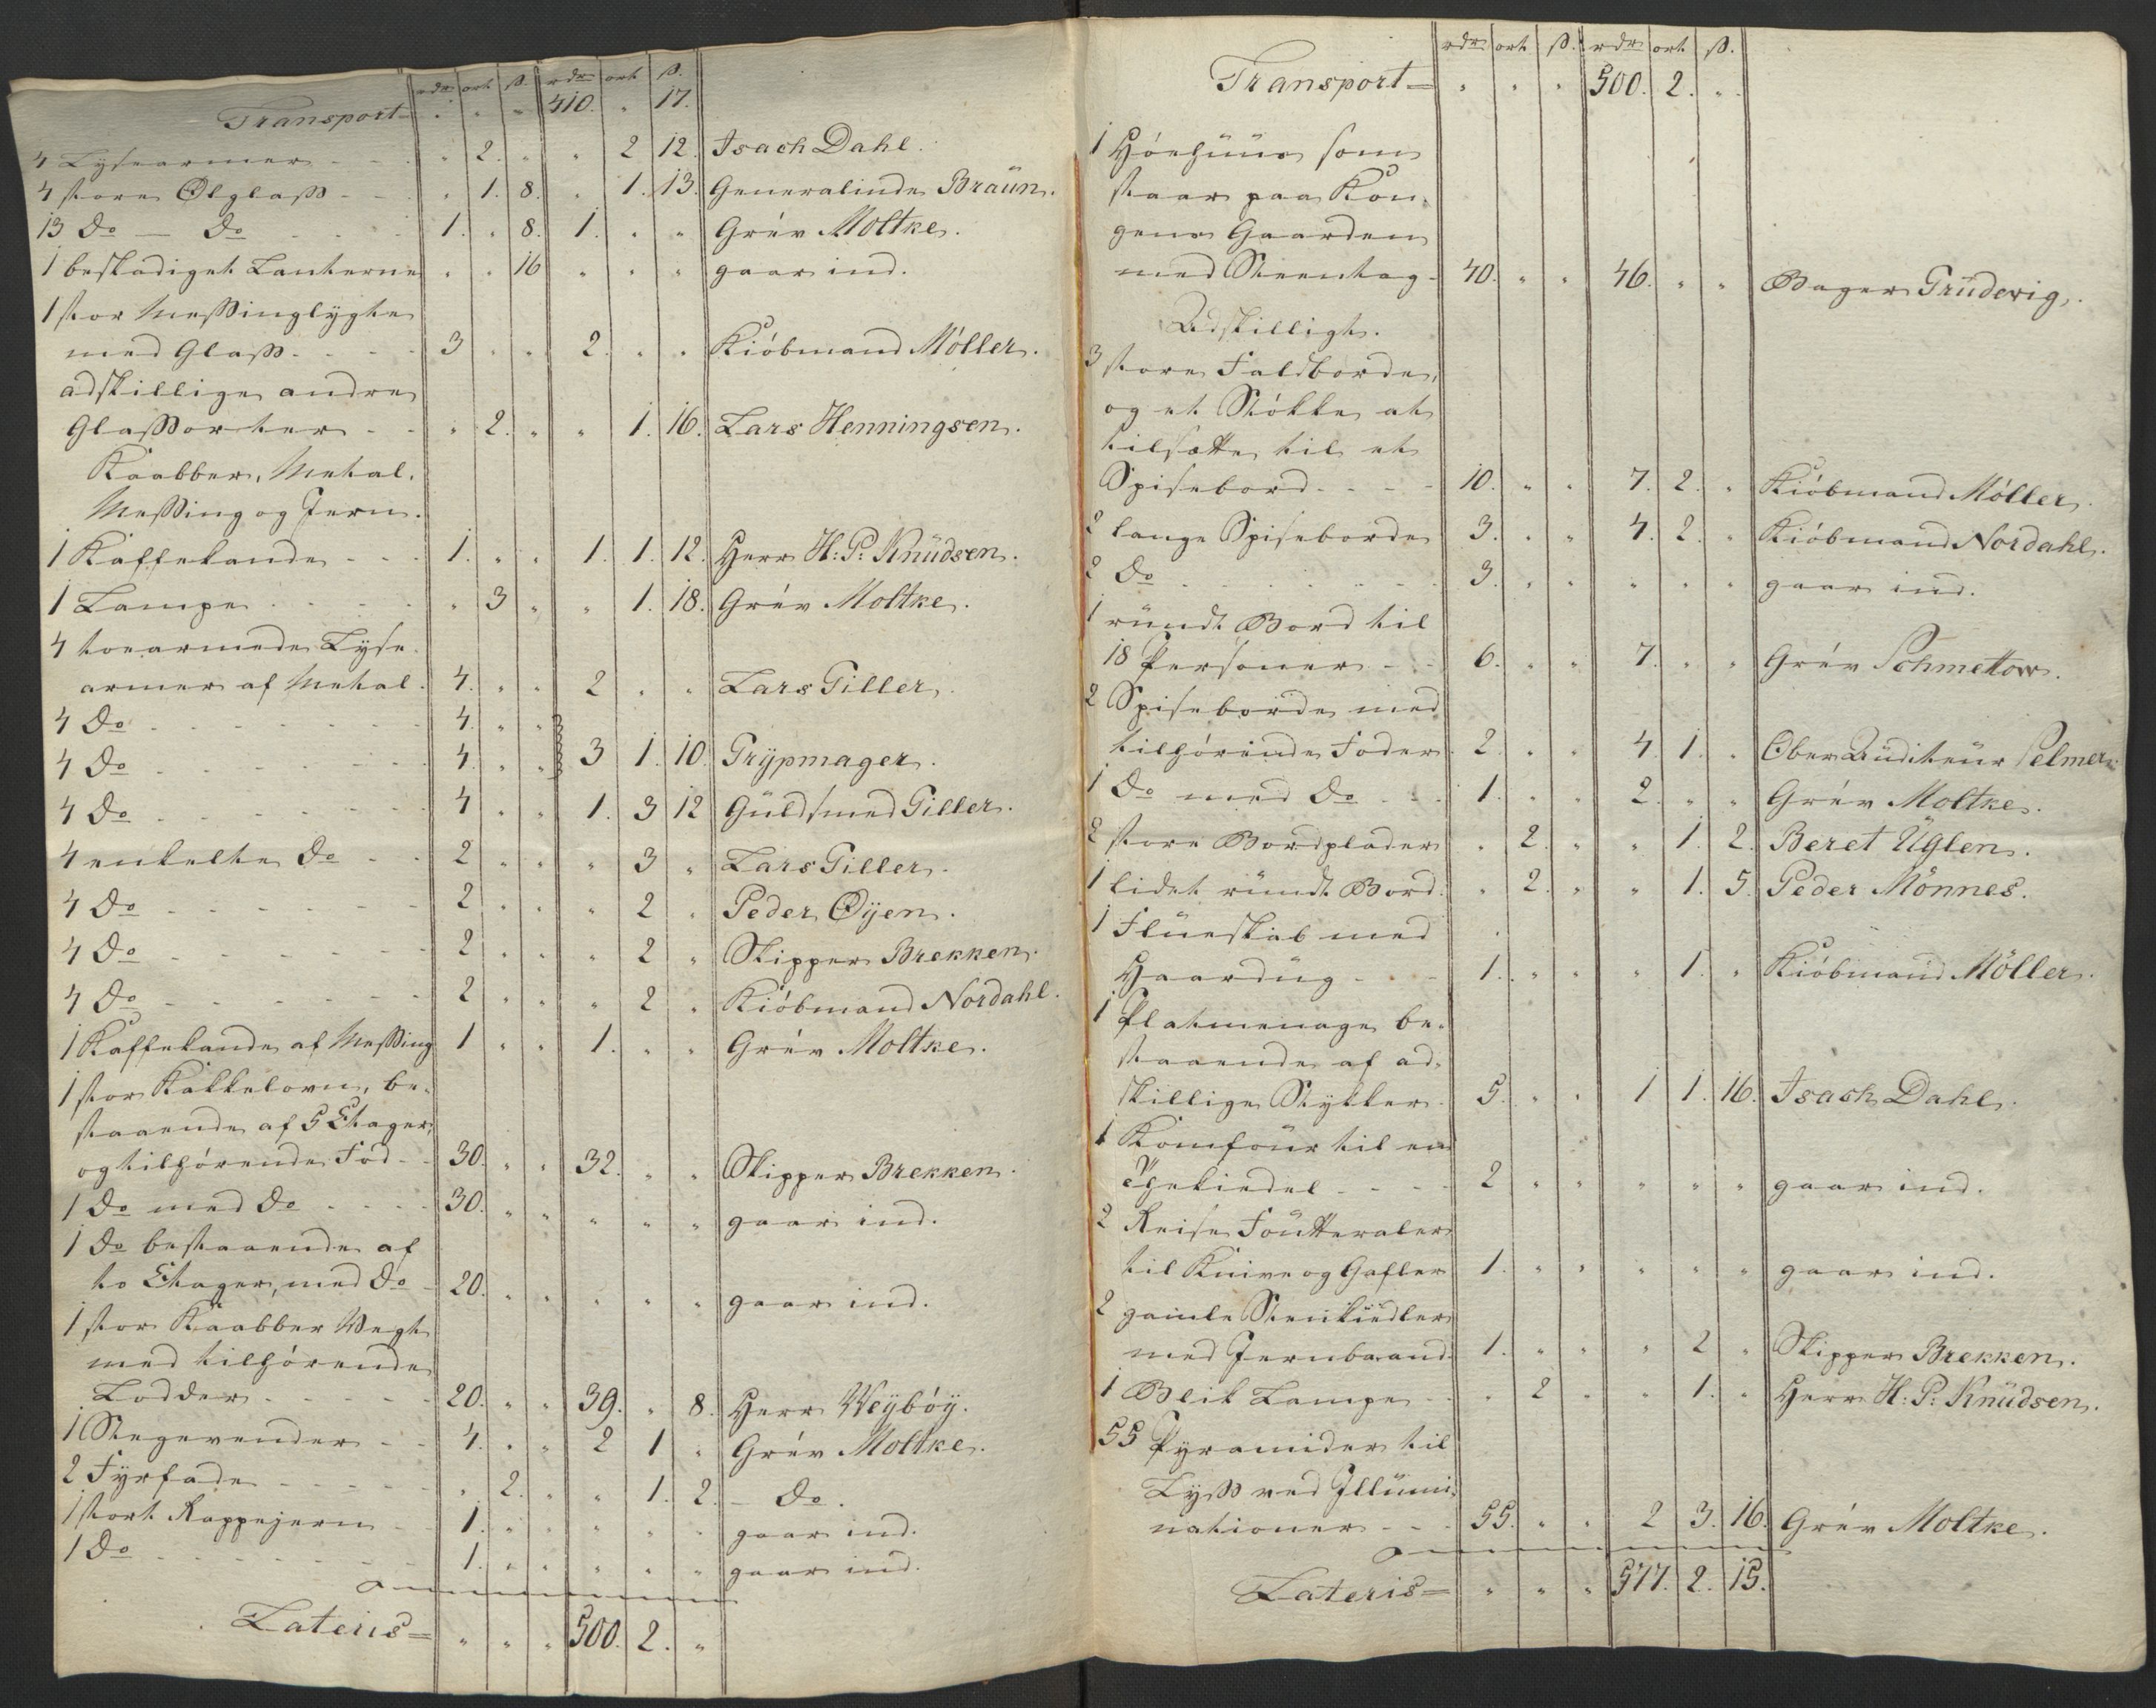 rdr ort ß. rdr ort ß.
Transport = " " " 410. " 17.
4 Lysearmer - - " 2. " " 2 12. Isach Dahl.
4 store Ølglaß - - " 1. 8. " 1. 13. Generalinde Braün.
13 Do — Do - - - 1. " 8. 1. " " Grév Moltke.
1 beskadiget Lanterne " " 16 " " " gaar ind.
1 stor Meßinglygte
med Glaß. - - - 3 " " 2. " " Kióbmand Móller.
adskillige andre
Glaßsorter - - " 2. " " 1. 16. Lars Henningsen.
Kaabber, Metal,
Meßing og Jern.
1 Kaffekande - - - 1. " " 1. 1. 12. Herr H: P: Knüdsen.
1 Lampe - - - - " 3 " " 1. 18. Grév Moltke.
4 toearmede Lyse-
armer af Metal. 4. " " 2 " " Lars Giller.
4 Do - - - - - - 4. " "
4 Do - - - - - - 4. " " 3 1. 10. Grÿpmager.
4 Do - - - - - - 4 " " 1. 3 12 Güldsmed Giller.
4 enkelte Do - - 2 " " " 3 " Lars Giller.
4 Do - - - - - - 2 " " " 2 " Peder Øÿen.
4 Do - - - - - - 2 " " " 2 " Skipper Brekken.
4 Do - - - - - - 2 " " " 2 " Kióbmand Nordahl.
1 Kaffekande af Meßing 1 " " 1. " " Grév Moltke.
1 stor Kakkelovn, be-
staaende af 5 Etager,
og tilhórende Fod - - 30. " " 32. " " Skipper Brekken.
1 Do med Do - - - - 30. " " " " " gaar ind.
1 Do bestaaende af
to Etager, med Do - 20. " " " " " gaar ind.
1 stor Kaabber Vegt
med tilhórende
Lodder - - - - - 20. " " 39. " 8. Herr Weÿbóÿ.
1 Stegevender - - 4. " " 2 1 " Grév Moltke.
2 Fÿrfade - - - - - " 2. " " 1. 2. - Do.
1 stort Rappejern - - 1. " " " " " gaar ind.
1 Do - - - - - - - 1. " " " " " gaar ind.
Lateris = " " " 500. 2. "
rdr ort ß. rdr ort ß.
Transport = " " " 500. 2. "
1 Hóehüüs som
staar paa Kon-
gens Gaarden
med Steentag - 40. " " 46. " " Bager Grüdevig.
Adskilligt.
3 store Faldborde,
og et Stókke at
tilsætte til et
Spisebord - - - - 10. " " 7. 2. " Kióbmand Móller.
2 lange Spiseborde 3. " " 4. 2. " Kióbmand Nordahl.
2 Do - - - - - - - 3. " " " " " gaar ind.
1 ründt Bord til
18 Personer - - - 6. " " 7. " " Grév Schmettow.
2 Spiseborde med
tilhórende Foder 2. " " 4 1. " Ober Auditeür Selmer.
1 Do med Do - - - 1. " " 2. " " Grév Moltke.
2 store Bordplader " 2. " " 1. 2. Beret Üglen.
1 lidet ründt Bord. " 2. " " 1. 5. Peder Mönnes.
1 Flüeskab med
Haardüg - - - 1. " " " 1. " Kióbmand Möller.
1 Platmenage be-
staaende af ad-
skillige Stÿkker - 5. " " 1 1. 16. Isach Dahl.
1 Komfoür til en
Thekiedel - - - - 2 " " " " " gaar ind.
2 Reise Foütteraler
til Knive og Gafler 1. " " " " " gaar ind.
2 gamle Steenkiedler
med Jernbaand. 1. " " " 2 " Skipper Brekken.
1 Blik Lampe - - " 2 " " 1. " Herr H: P: Knüdsen.
55 Pÿramider til
Lÿß ved Illümi-
nationer - - - 55. " " 2 3. 16. Grév Moltke.
Lateris = " " " 577. 2. 15.